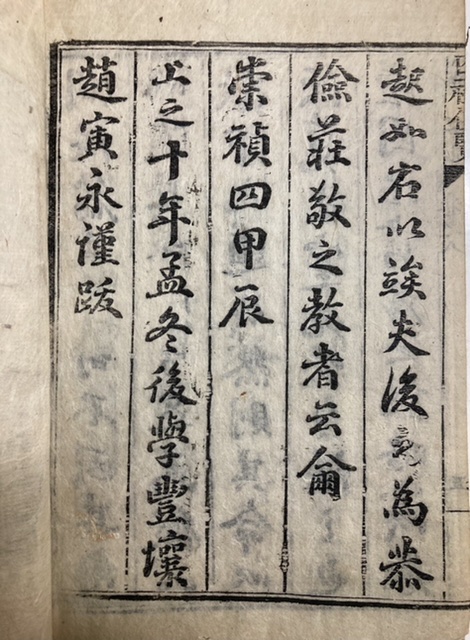 如右以竢夫後為恭
儉莊敬之教者云爾
崇禎四甲辰
上之十年孟冬後學豐壤
趙寅永謹跋